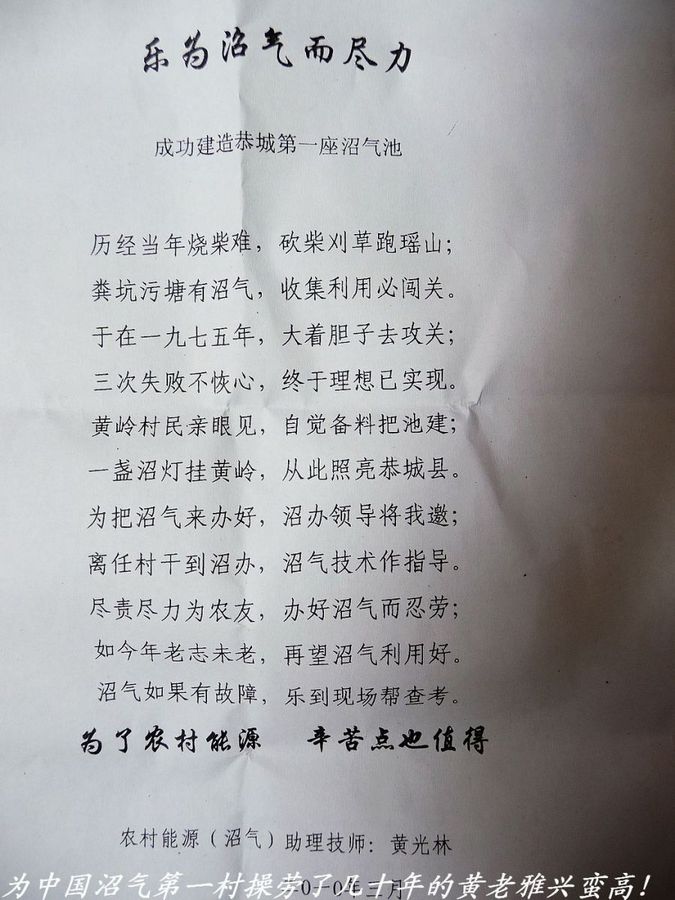 乐为沼气而尽力
成功建造恭城第一座沼气池
历经当年烧柴难，砍柴刈草跑瑶山；
粪坑污塘有沼气，收集利用必闯关。
于在一九七五年，大着胆子去攻关；
三次失败不恢心，终于理想已实现。
黄岭村民亲眼见，自觉备料把池建；
一盏沼灯挂黄岭，从此照亮恭城县。
为把沼气来办好，沼办领导将我邀；
离任村干到沼办，沼气技术作指导。
尽责尽力为农友，办好沼气而忍劳；
如今年老志未老，再望沼气利用好。
沼气如果有故障，乐到现场帮查考。
为了农村能源 辛苦点也值得
农村能源（沼气）助理技师：黄光林
为中国沼气第一村操劳了几十年的黄老雅兴蛮高！